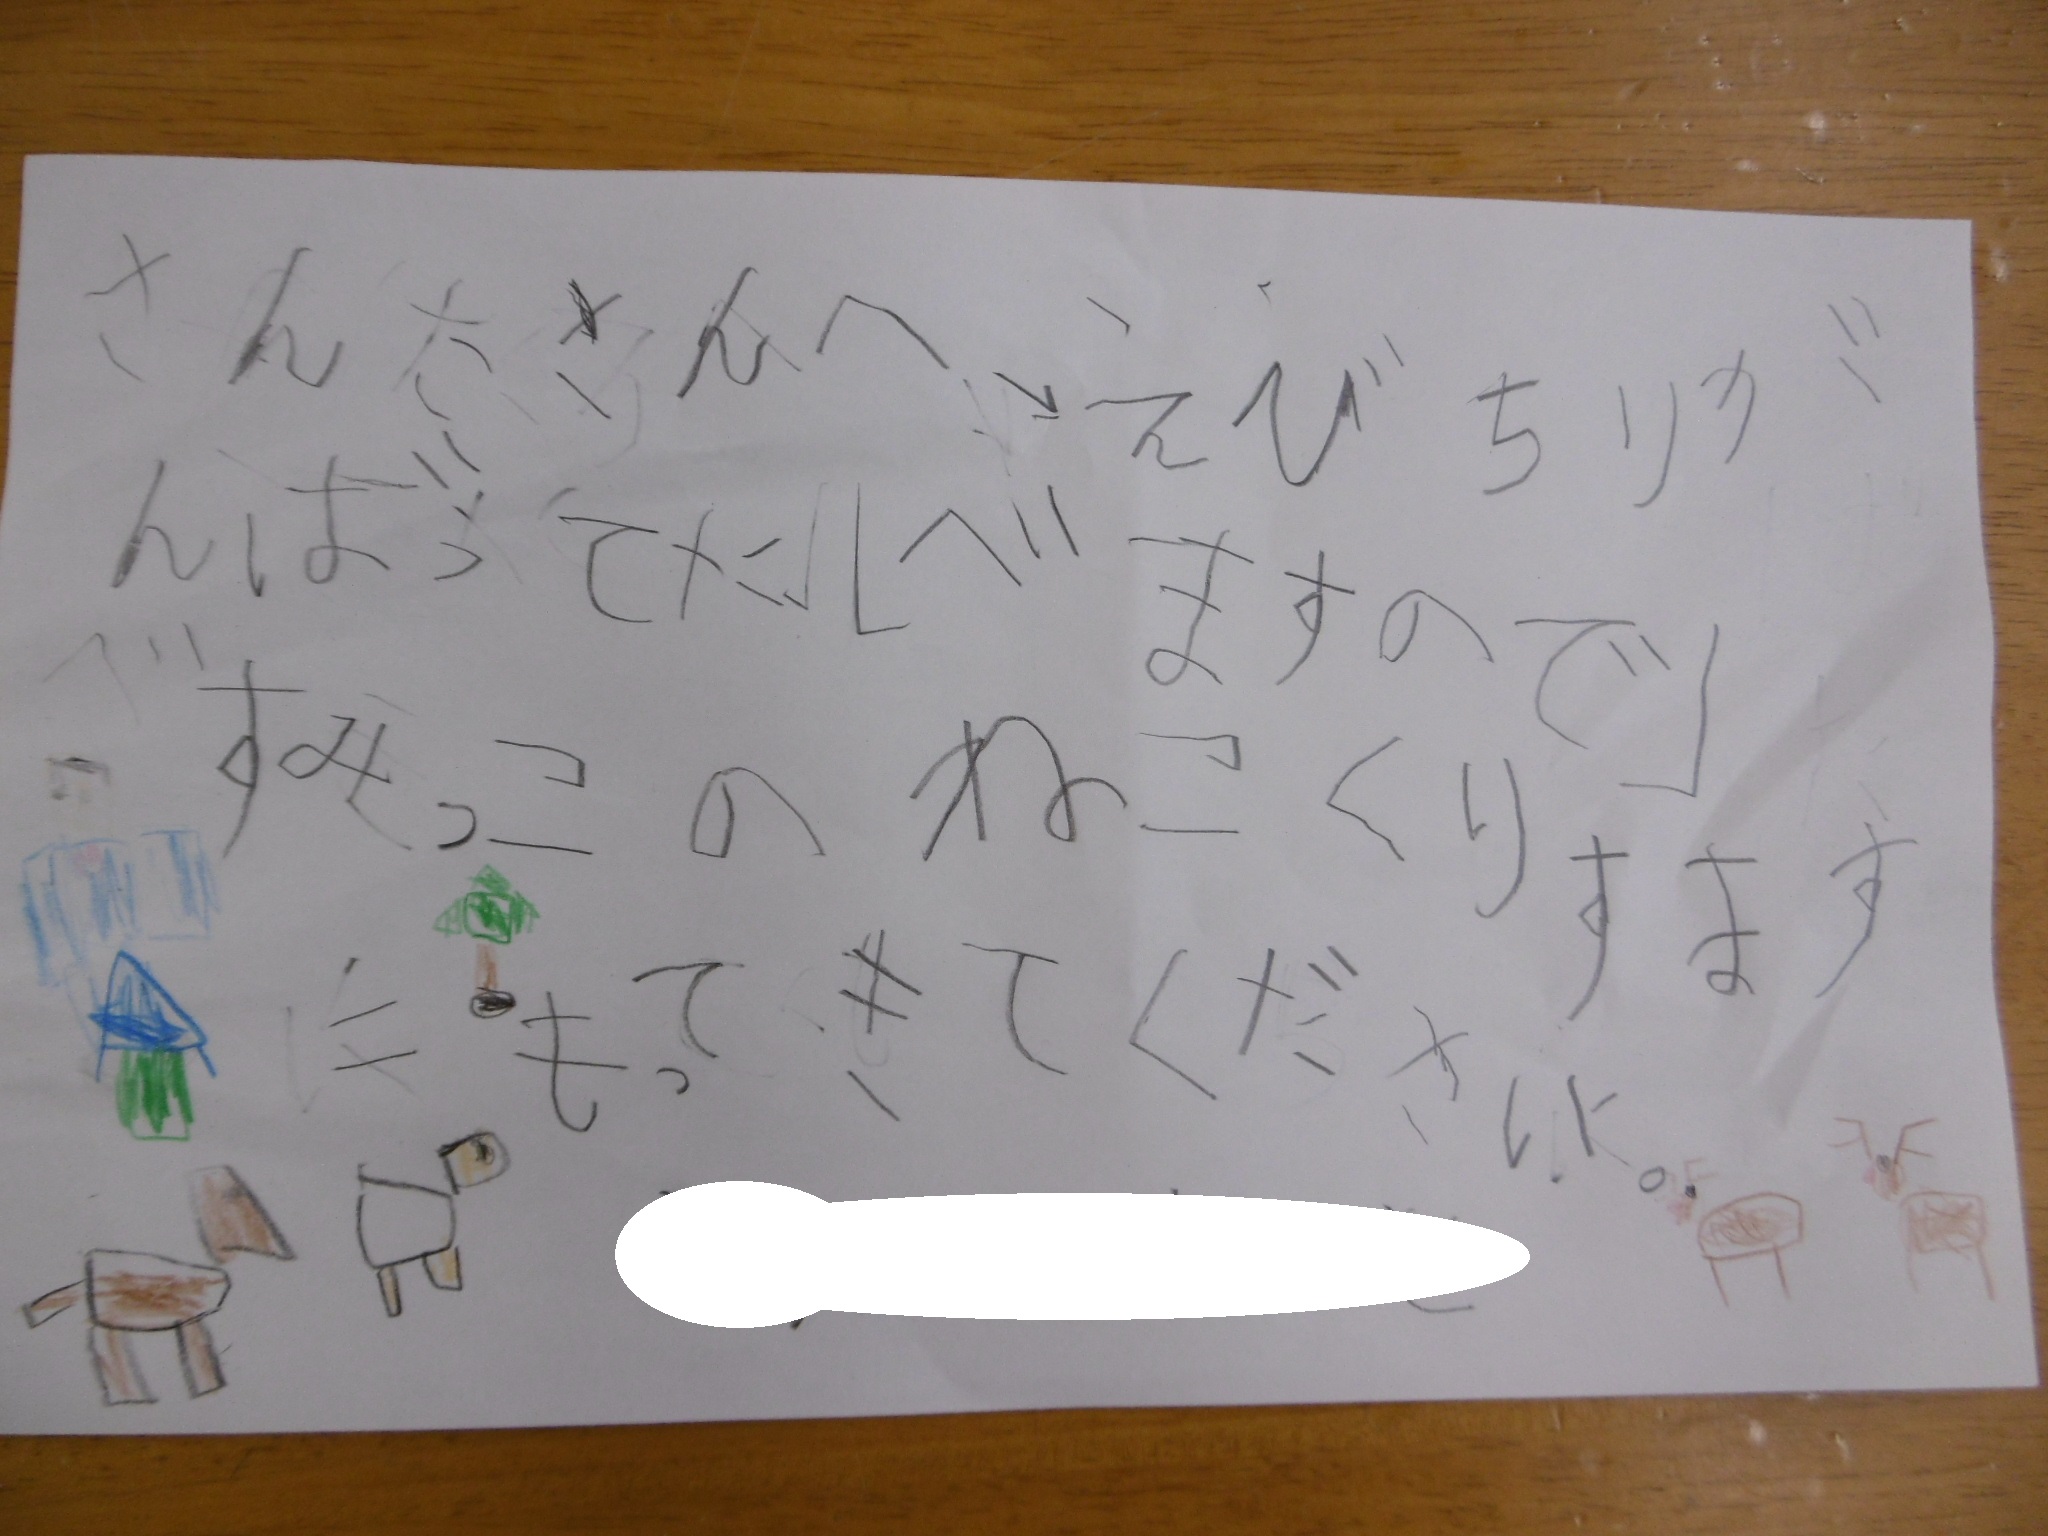 さんささんへ、えびちりが
んばってた」「べますので」
べすみっこのねこくり
すます
にもってきてください。